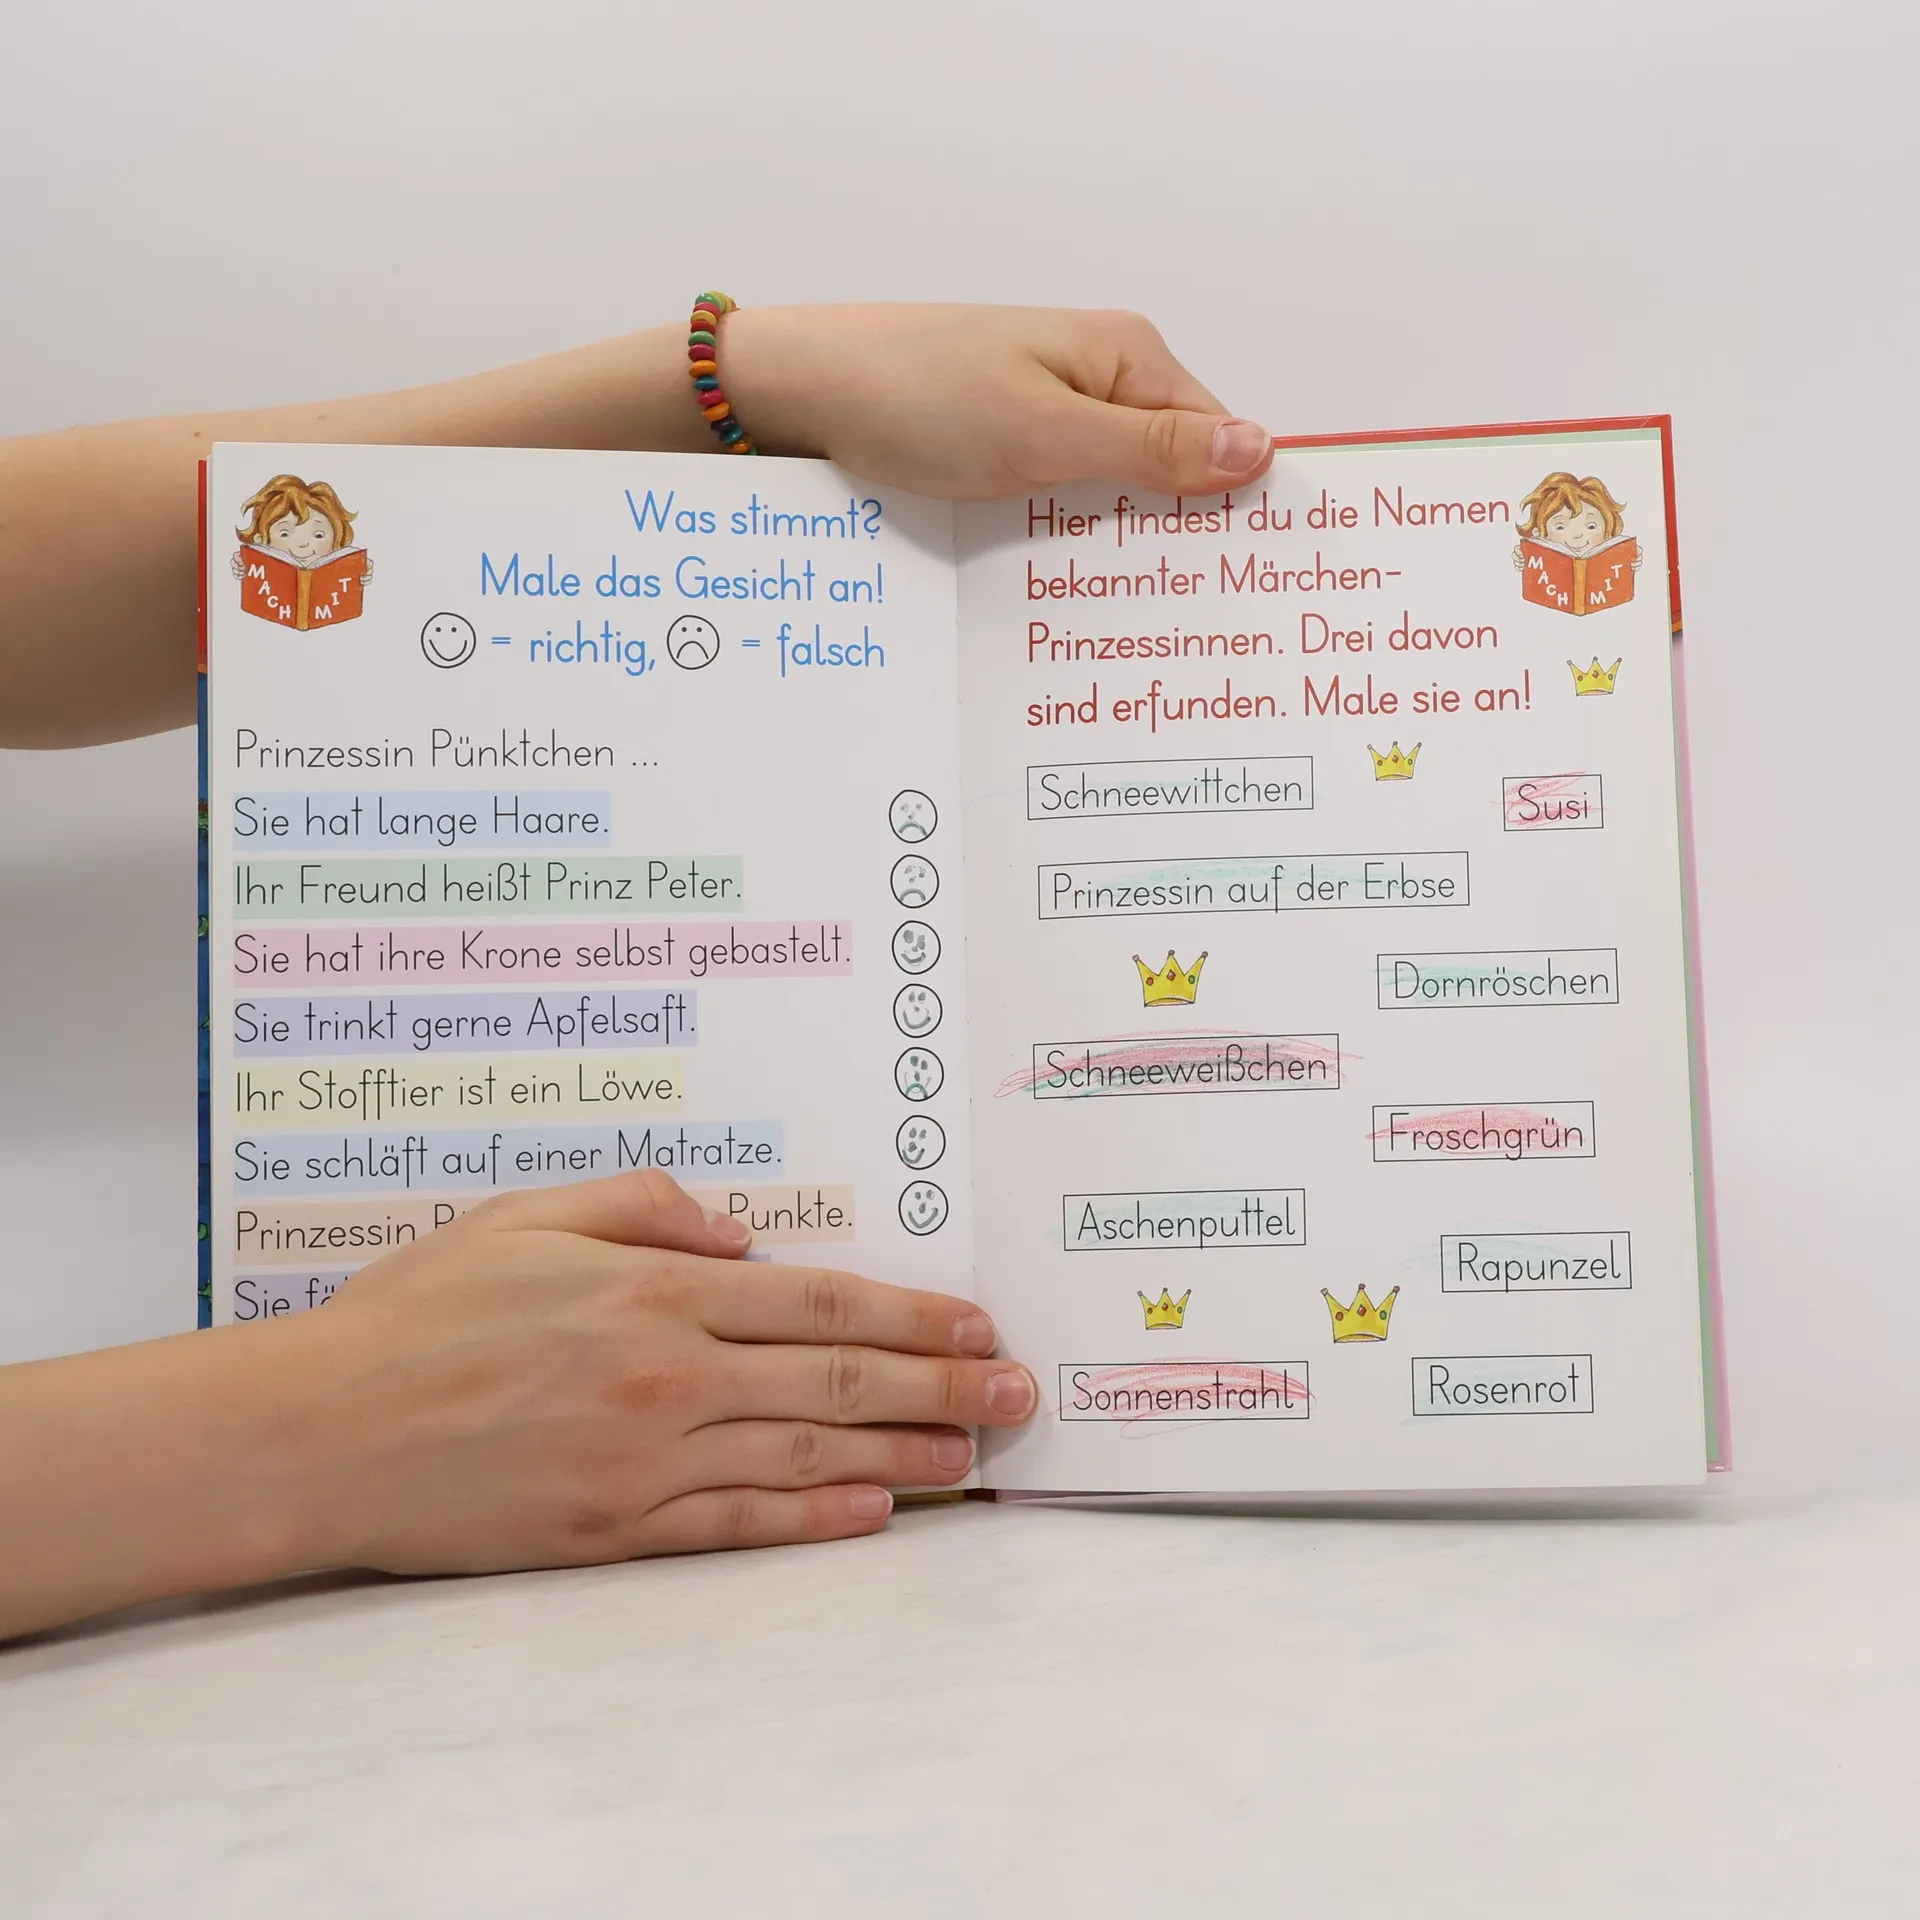 MACH MIT
Was stimmt?
Male das Gesicht an!
= richtig, = falsch
Prinzessin Pünktchen ...
Sie hat lange Haare.
Ihr Freund heißt Prinz Peter.
Sie hat ihre Krone selbst gebastelt.
Sie trinkt gerne Apfelsaft.
Ihr Stofftier ist ein Löwe.
Sie schläft auf einer Matratze.
Prinzessin Punkte.
Sie
Hier findest du die Namen
bekannter Märchen-
Prinzessinnen. Drei davon
sind erfunden. Male sie an!
MACH MIT
Schneewittchen
Susi
Prinzessin auf der Erbse
Dornröschen
Schneeweißchen
Froschgrün
Aschenputtel
Rapunzel
Sonnenstrahl
Rosenrot